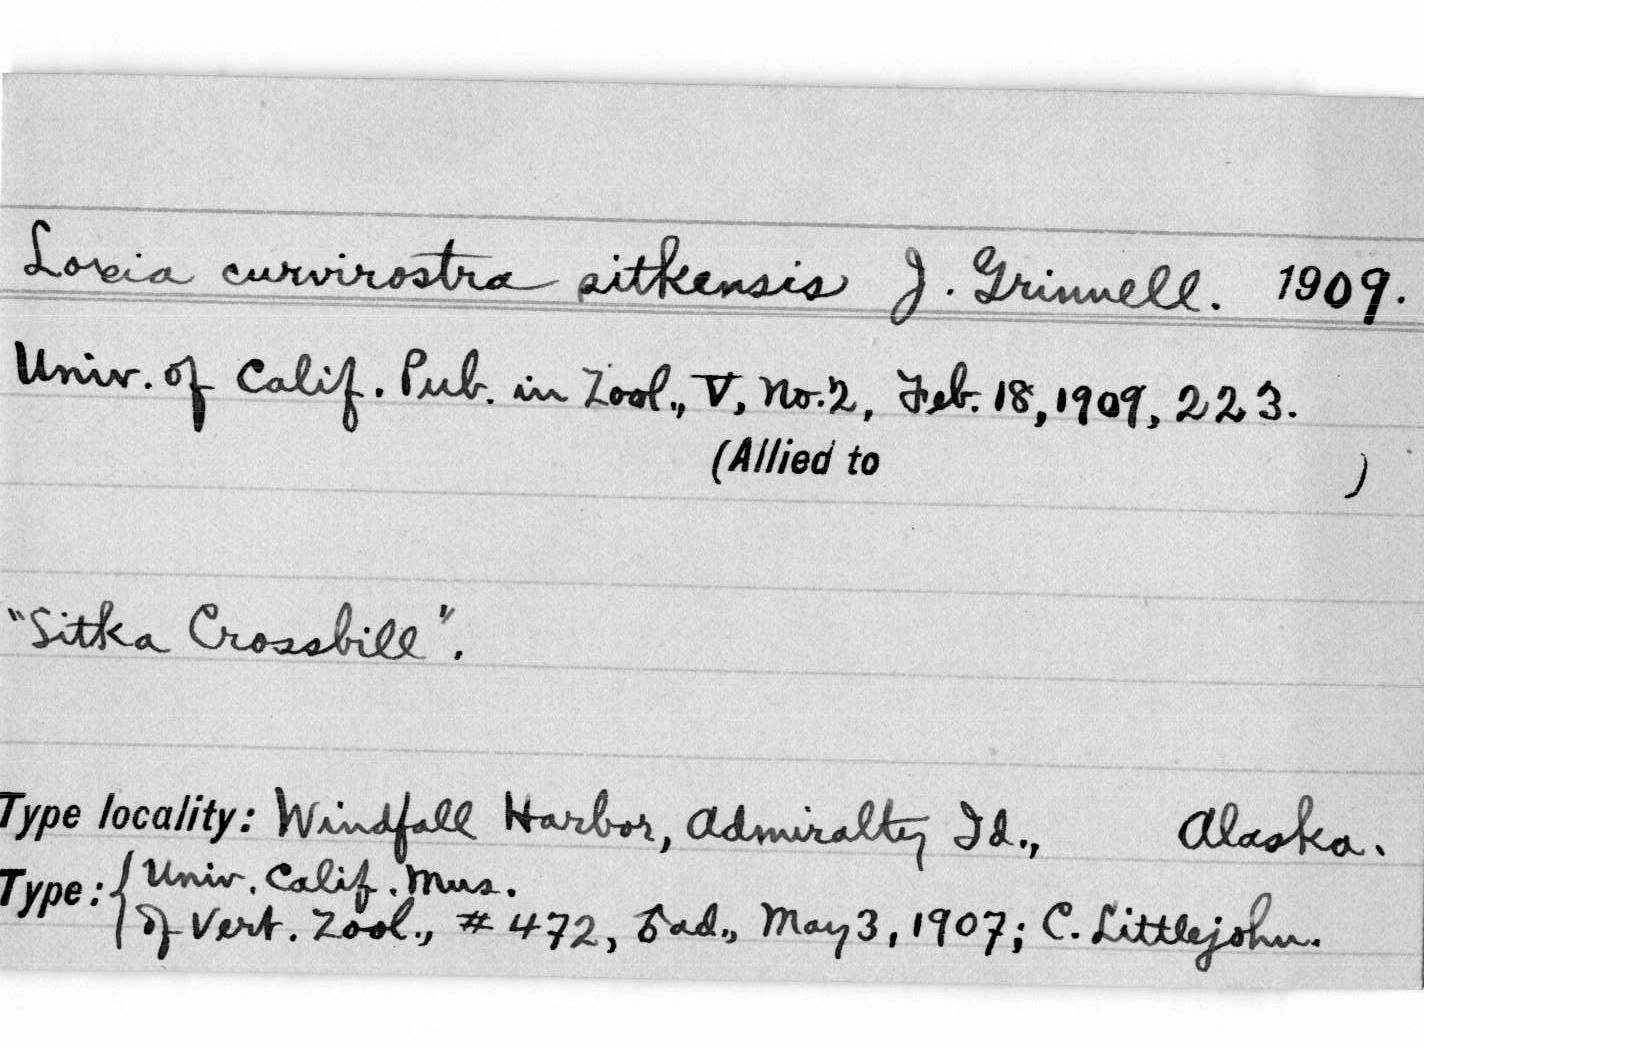 Loxia curvirostra sitkensis J. Grinnell. 1909.
Univ. of Calif. Pub. in Zool., V, No. 2, Feb. 18, 1909, 223.
(Allied to )
"Sitka Crossbill".
Type locality: Windfall Harbor, Admiralty Id., Alaska.
Type: { Univ. Calif. Mus.
of Vert. Zool., # 472, ♂ ad., May 3, 1907; C. Littlejohn.